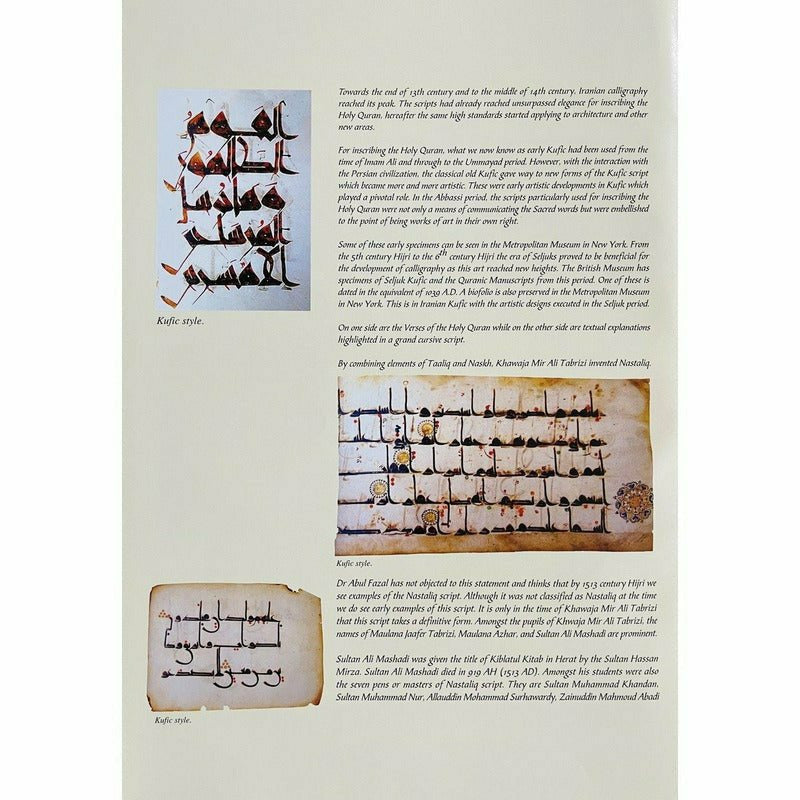 Towards the end of 13th century and to the middle of 14th century, Iranian calligraphy
reached its peak. The scripts had already reached unsurpassed elegance for inscribing the
Holy Quran, hereafter the same high standards started applying to architecture and other
new areas.
For inscribing the Holy Quran, what we now know as early Kufic had been used from the
time of Imam Ali and through to the Ummayad period. However, with the interaction with
the Persian civilization, the classical old Kufic gave way to new forms of the Kufic script
which became more and more artistic. These were early artistic developments in Kufic which
played a pivotal role. In the Abbassi period, the scripts particularly used for inscribing the
Holy Quran were not only a means of communicating the Sacred words but were embellished
to the point of being works of art in their own right.
Some of these early specimens can be seen in the Metropolitan Museum in New York. From
the 5th century Hijri to the 6th century Hijri the era of Seljuks proved to be beneficial for
the development of calligraphy as this art reached new heights. The British Museum has
specimens of Seljuk Kufic and the Quranic Manuscripts from this period. One of these is
dated in the equivalent of 1039 A.D. A biofolio is also preserved in the Metropolitan Museum
in New York. This is in Iranian Kufic with the artistic designs executed in the Seljuk period.
Kufic style.
On one side are the Verses of the Holy Quran while on the other side are textual explanations
highlighted in a grand cursive script.
By combining elements of Taaliq and Naskh, Khawaja Mir Ali Tabrizi invented Nastaliq.
Kufic style.
Dr Abul Fazal has not objected to this statement and thinks that by 1513 century Hijri we
see examples of the Nastaliq script. Although it was not classified as Nastaliq at the time
we do see early examples of this script. It is only in the time of Khawaja Mir Ali Tabrizi
that this script takes a definitive form. Amongst the pupils of Khwaja Mir Ali Tabrizi, the
names of Maulana Jaafer Tabrizi, Maulana Azhar, and Sultan Ali Mashadi are prominent.
Sultan Ali Mashadi was given the title of Kiblatul Kitab in Herat by the Sultan Hassan
Mirza. Sultan Ali Mashadi died in 919 AH (1513 AD). Amongst his students were also
the seven pens or masters of Nastaliq script. They are Sultan Muhammad Khandan,
Sultan Muhammad Nur, Allauddin Mohammad Surhawardy, Zainuddin Mahmoud Abadi
Kufic style.